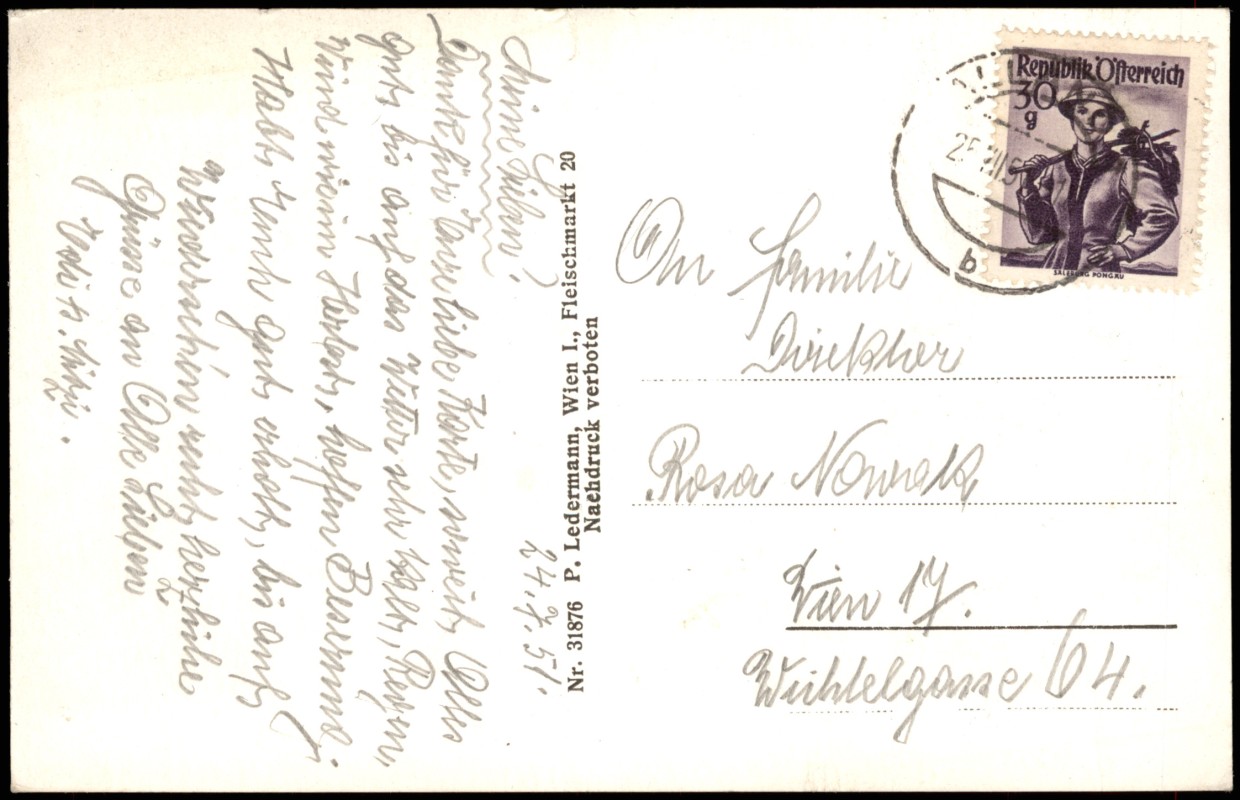 24.7.51.
Meine Lieben!
Dank für Eure liebe Karte, soweit Alles
gut, bis auf das Wetter sehr kalt, Regen,
Wind Herbst, hoffen Besserung.
Habt Euch gut erholt, bis auf
Wiedersehen recht herzliche
Grüsse an Alle Lieben
Nr. 31876 P. Ledermann, Wien I., Fleischmarkt 20
Nachdruck verboten
Republik Österreich
30
g
SALZBURG PONGAU
b
An Familie
Direktor
Rosa Nowak
Wien 17.
Wichtelgasse 64.